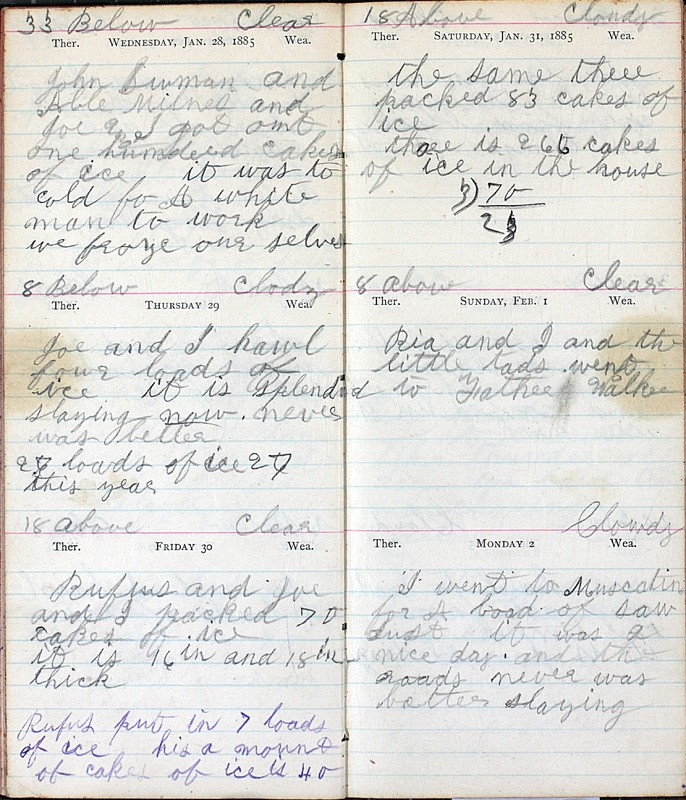 33 Below Clear
Ther. WEDNESDAY, JAN. 28, 1885 Wea.
John Burman and
Able Milnes and
Joe & I got out
one hundred cakes
of ice it was to
cold fo A white
man to work
we froze our selves
8 Below Clody
Ther. THURSDAY 29 Wea.
Joe and I hawl
four loads of
ice it is splendid
slaying now. never
was better
27 loads of ice 27
this year
18 above Clear
Ther. FRIDAY 30 Wea.
Rufus and Joe
and I packed 70
cakes of ice
it is 16 in and 18 in
thick
Rufus put in 7 loads
of ice his a mount
of cakes of ice is 40
18 Above Clondy
Ther. SATURDAY, JAN. 31, 1885 Wea.
the same three
packed 83 cakes of
ice
thare is 266 cakes
of ice in the house
3)70
23
8 above Clear
Ther. SUNDAY, FEB. 1 Wea.
Ria and I and the
little tads went
to Father Walke
Clowdy
Ther. MONDAY 2 Wea.
I went to Muscatin
for A load of saw
dust it was a
nice day. and the
roads never was
better slaying